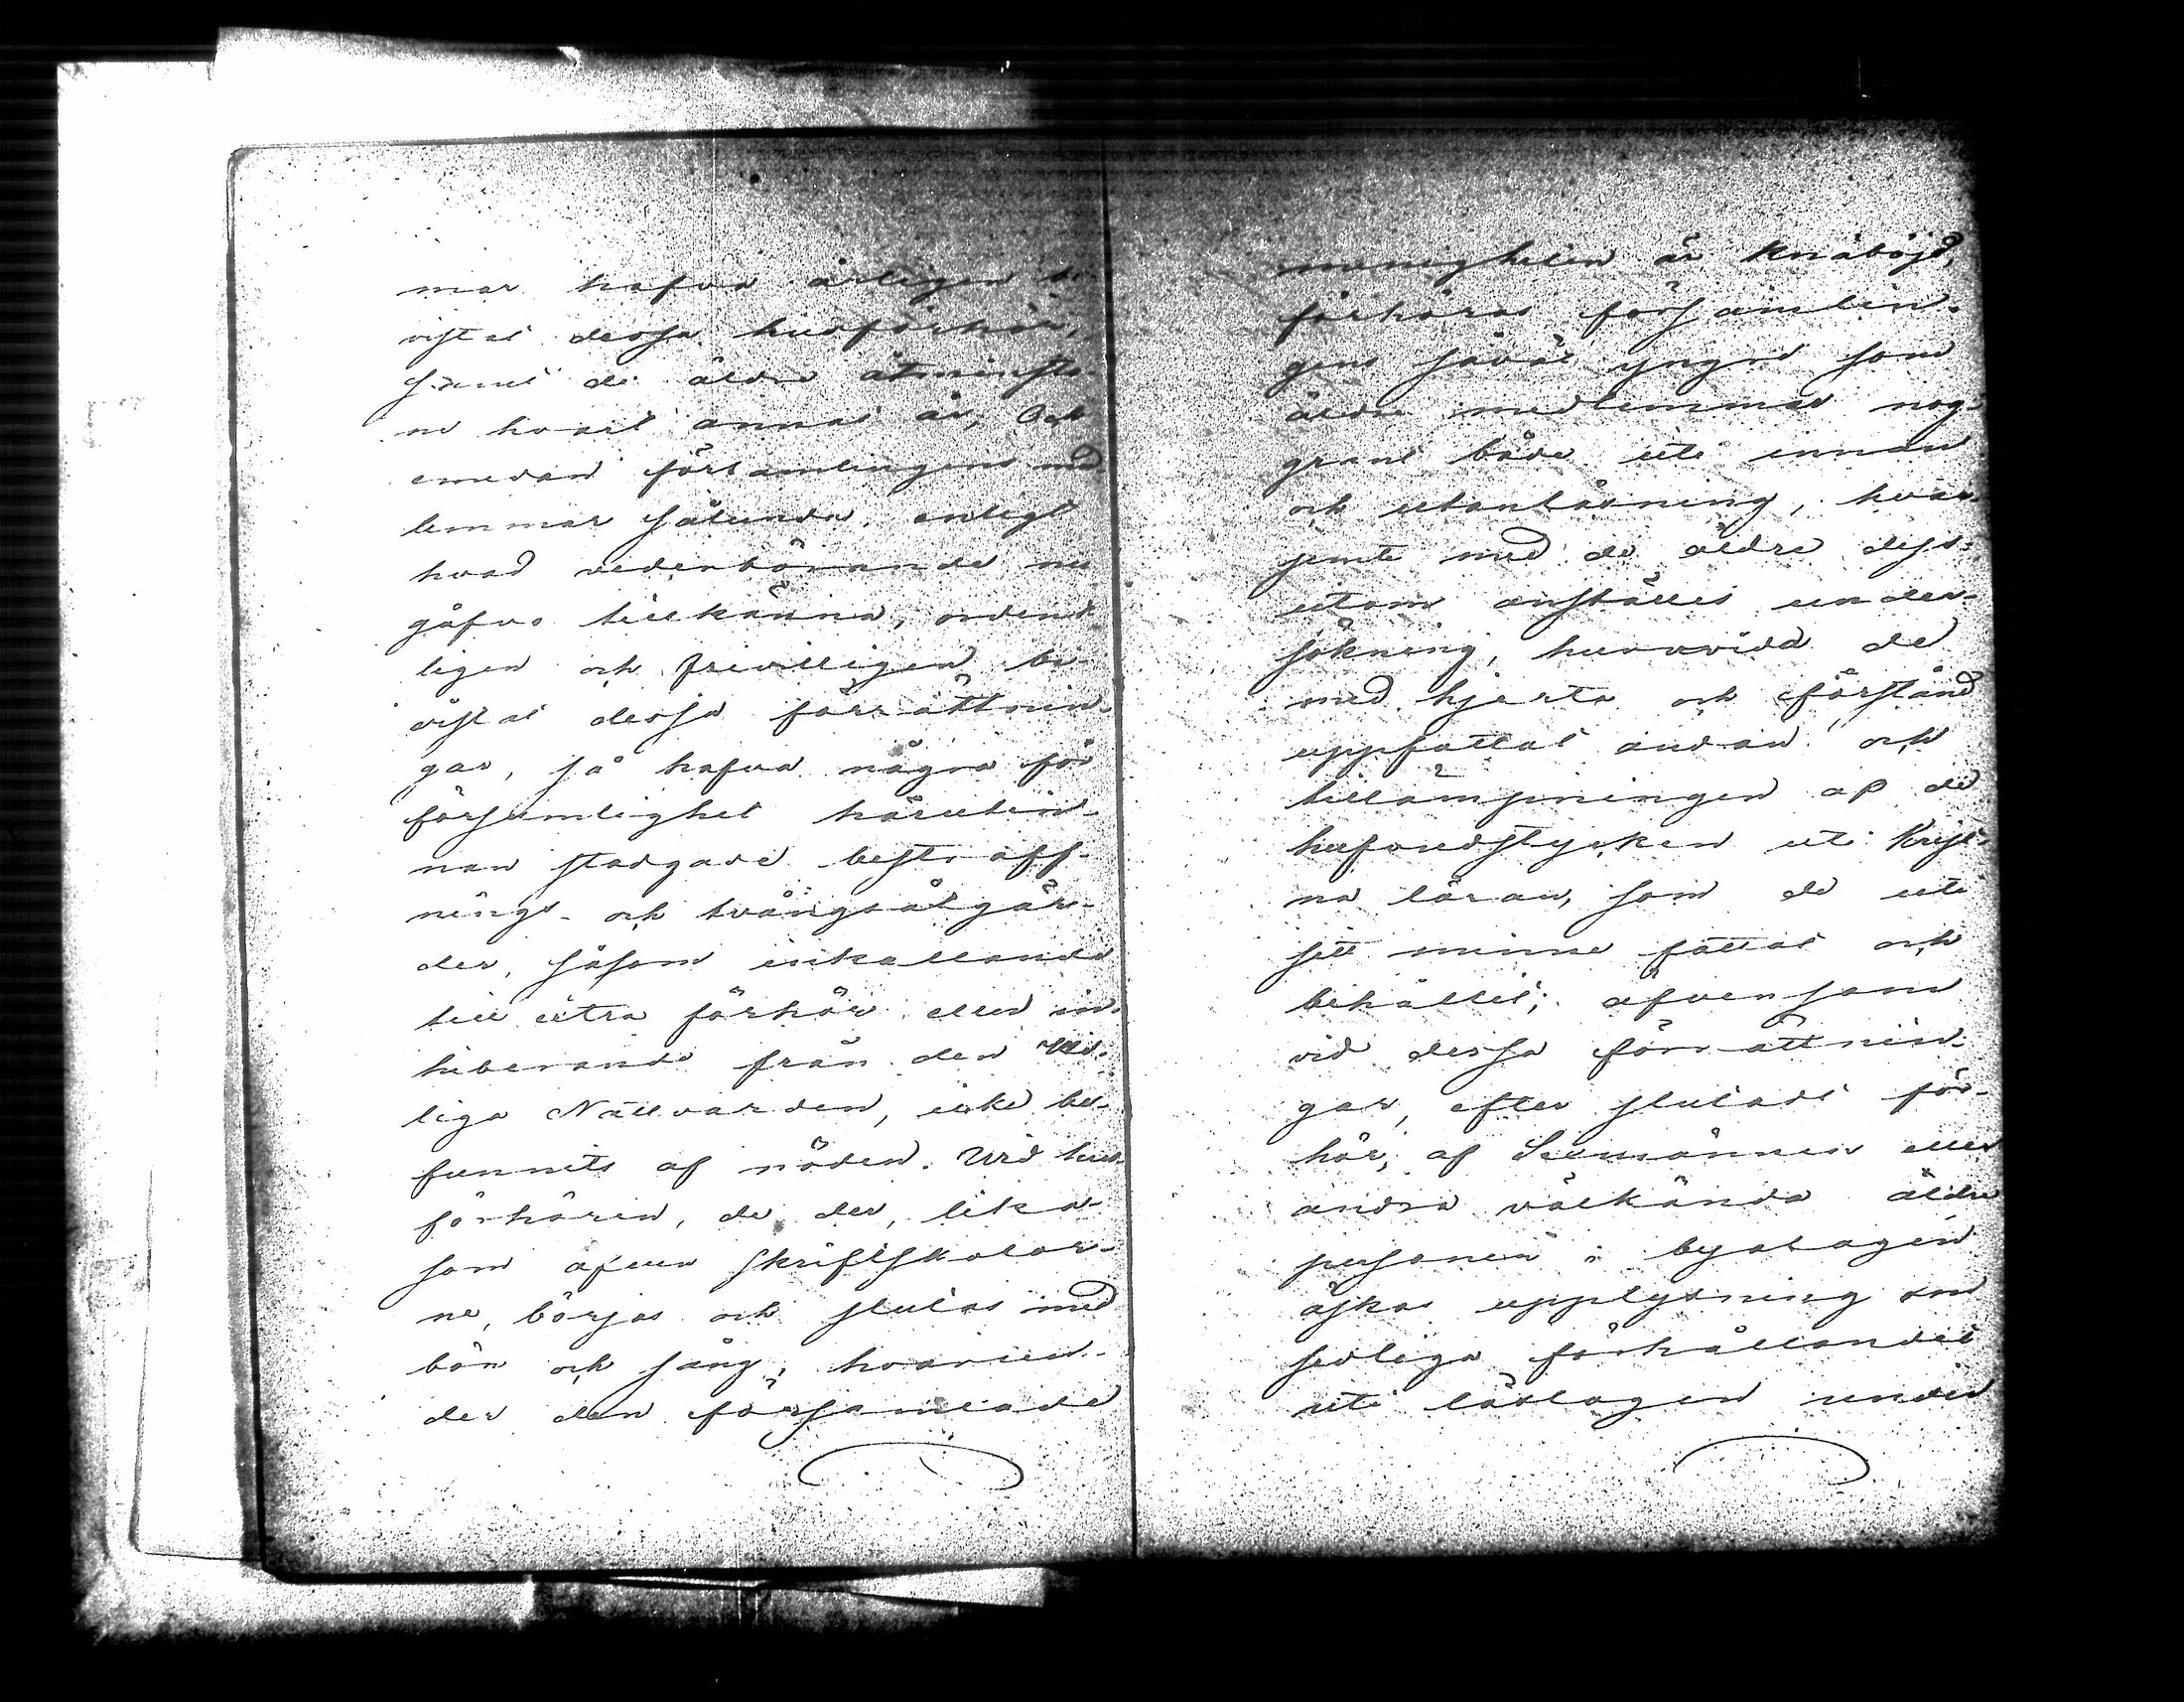 mar hafva årligen be-
vistat dessa husförhör,
samt de äldre åtminsto-
ne hvart annat år, Och
emedan församlingens med
lemmar sålunda, enligt
hvad vederbörande nu
gåfvo tillkänna, ordent-
ligen och frivilligen be-
vistat dessa förrättnin-
gar, så hafva några för
försumlighet härutin-
nan stadgade bestraff-
nings- och tvångsåtgär-
der, såsom inkallande
till extra förhör eller in-
hiberande från den
liga Nattvarden, icke be-
funnits af nöden. Vid hus-
förhören, de der, lika-
som äfven skriftskolar-
ne, börjas och slutas med
bön och sång, hvarun-
der den församlade
menigheten är knäböjd,
förhöras församlin-
gens såväl yngre som
äldre medlemmar nog-
grant både uti innan
och utanläsning, hvar-
jemte med de äldre dess-
utom anställes under-
sökning, huruvida de
med hjerta och förstånd
uppfattat andan och
tillämpningen af de
hufvudstycken uti krist-
na läran, som de uti
sitt minne fattat och
behållit; äfvensom
vid dessa förrättnin-
gar, efter slutadt för-
hör, af Sexmännen eller
andra välkända äldre
personer i byalagen
äskas upplysning om
sedliga förhållandet
uti läslagen under